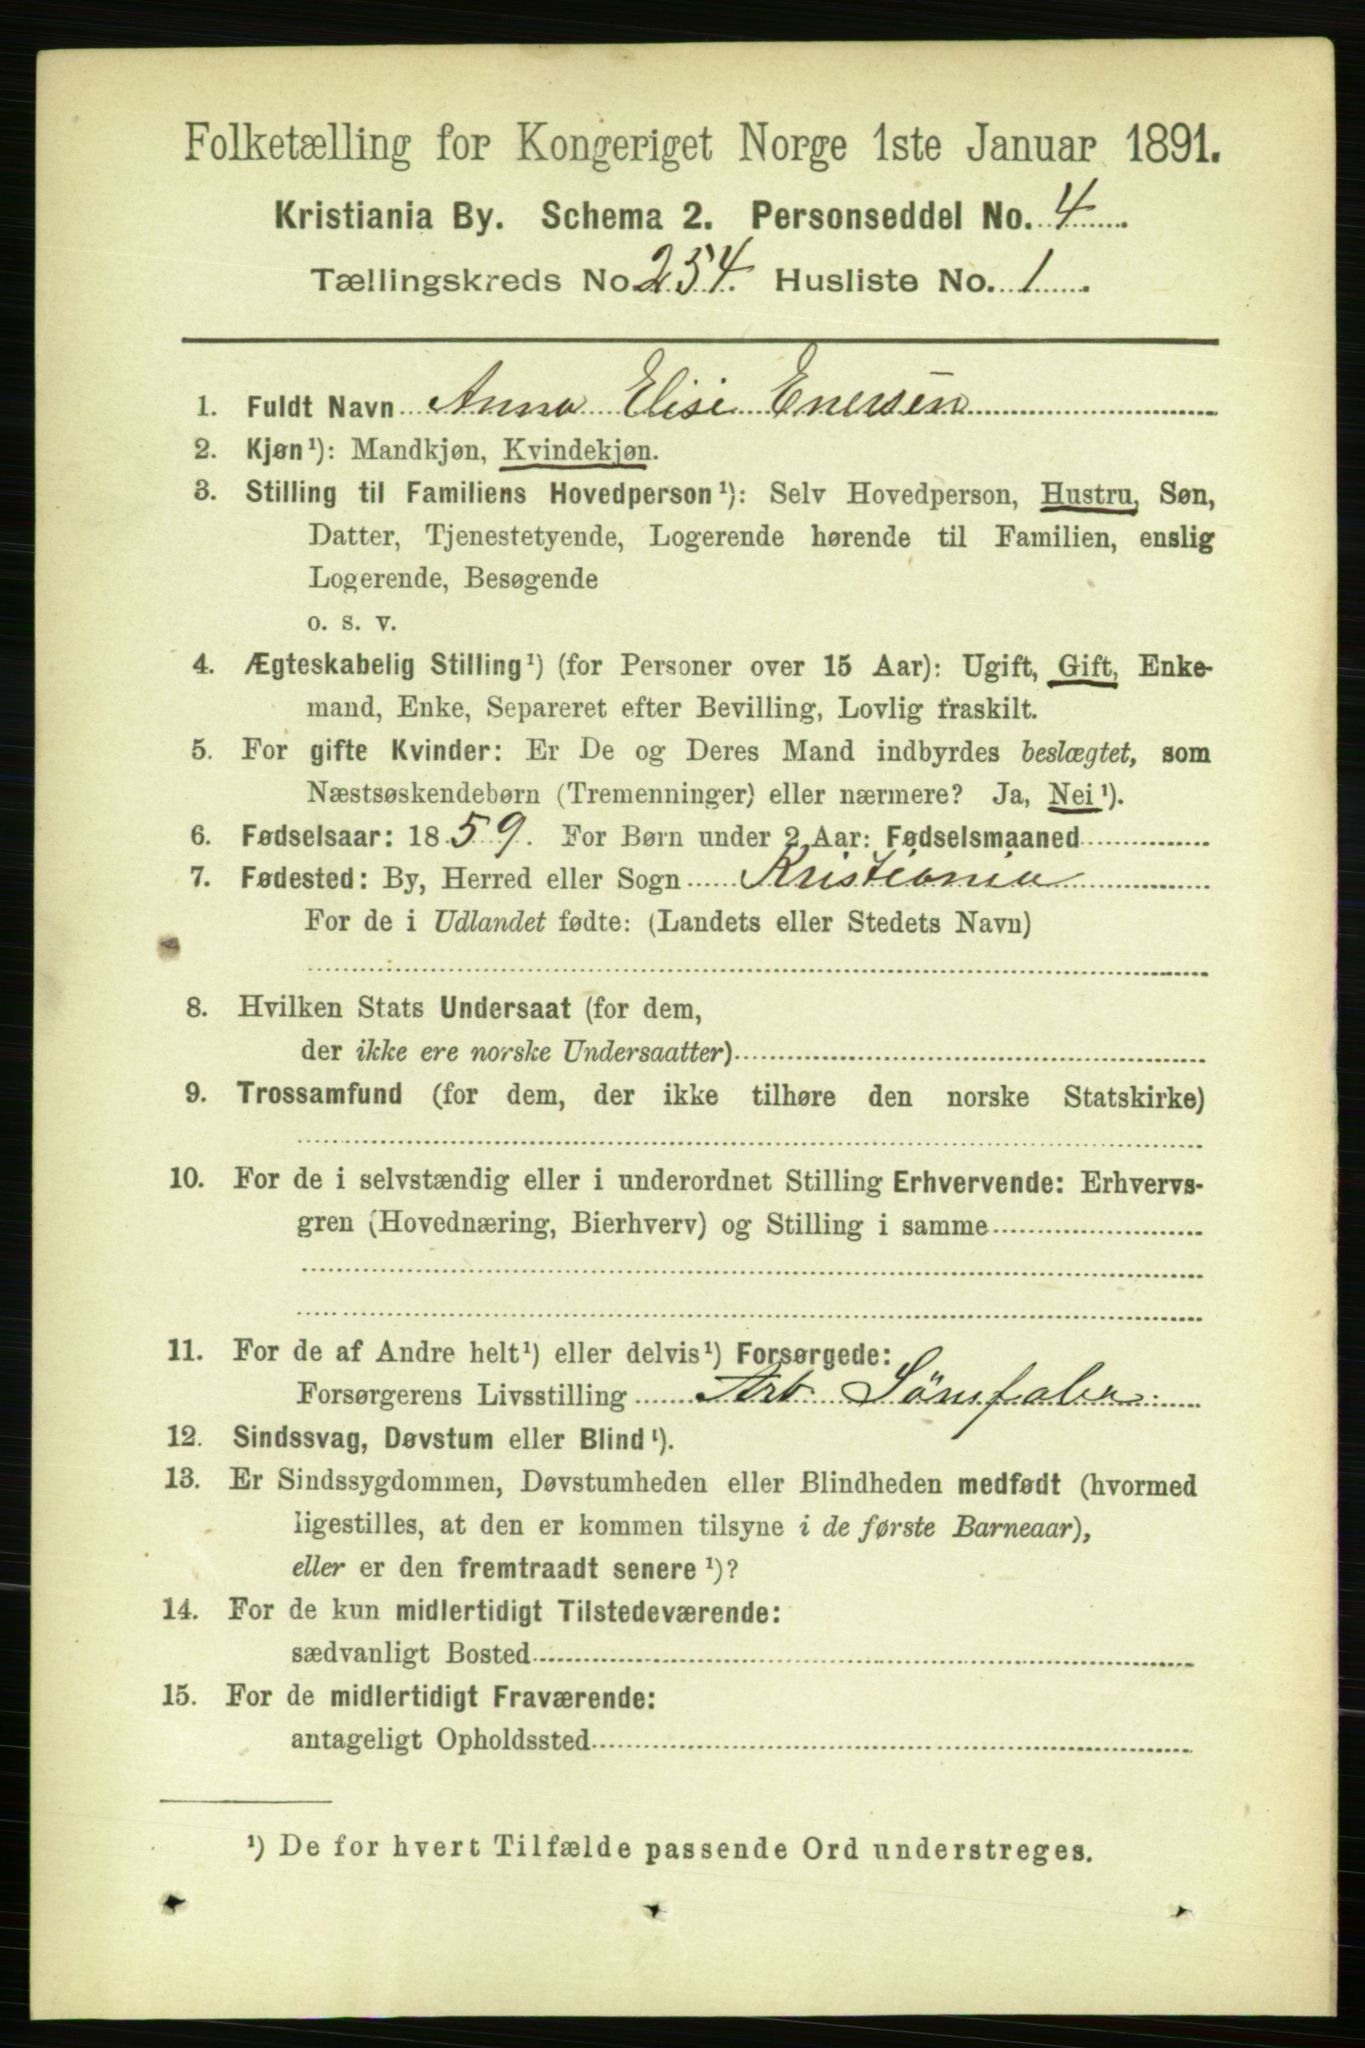 Folketælling for Kongeriget Norge 1ste Januar 1891.
Kristiania By. Schema 2. Personseddel No. 4
Tællingskreds No 254. Husliste No. 1
1. Fuldt Navn Anna Elise Enersen
2. Kjøn¹): Mandkjøn, Kvindekjøn.
3. Stilling til Familiens Hovedperson¹): Selv Hovedperson, Hustru, Søn,
Datter, Tjenestetyende, Logerende hørende til Familien, enslig
Logerende, Besøgende
o. s. v.
4. Ægteskabelig Stilling¹) (for Personer over 15 Aar): Ugift, Gift, Enke-
mand, Enke, Separeret efter Bevilling, Lovlig fraskilt.
5. For gifte Kvinder: Er De og Deres Mand indbyrdes beslægtet, som
Næstsøskendebørn (Tremenninger) eller nærmere? Ja, Nei¹).
6. Fødselsaar: 1859. For Børn under 2 Aar: Fødselsmaaned
7. Fødested: By, Herred eller Sogn Kristiania
For de i Udlandet fødte: (Landets eller Stedets Navn)
8. Hvilken Stats Undersaat (for dem,
der ikke ere norske Undersaatter)
9. Trossamfund (for dem, der ikke tilhøre den norske Statskirke)
10. For de i selvstændig eller i underordnet Stilling Erhvervende: Erhvervs-
gren (Hovednæring, Bierhverv) og Stilling i samme
11. For de af Andre helt¹) eller delvis¹) Forsørgede:
Forsørgerens Livsstilling Arb.
12. Sindssvag, Døvstum eller Blind¹).
13. Er Sindssygdommen, Døvstumheden eller Blindheden medfødt (hvormed
ligestilles, at den er kommen tilsyne i de første Barneaar),
eller er den fremtraadt senere¹)?
14. For de kun midlertidigt Tilstedeværende:
sædvanligt Bosted
15. For de midlertidigt Fraværende:
antageligt Opholdssted
¹) De for hvert Tilfælde passende Ord understreges.